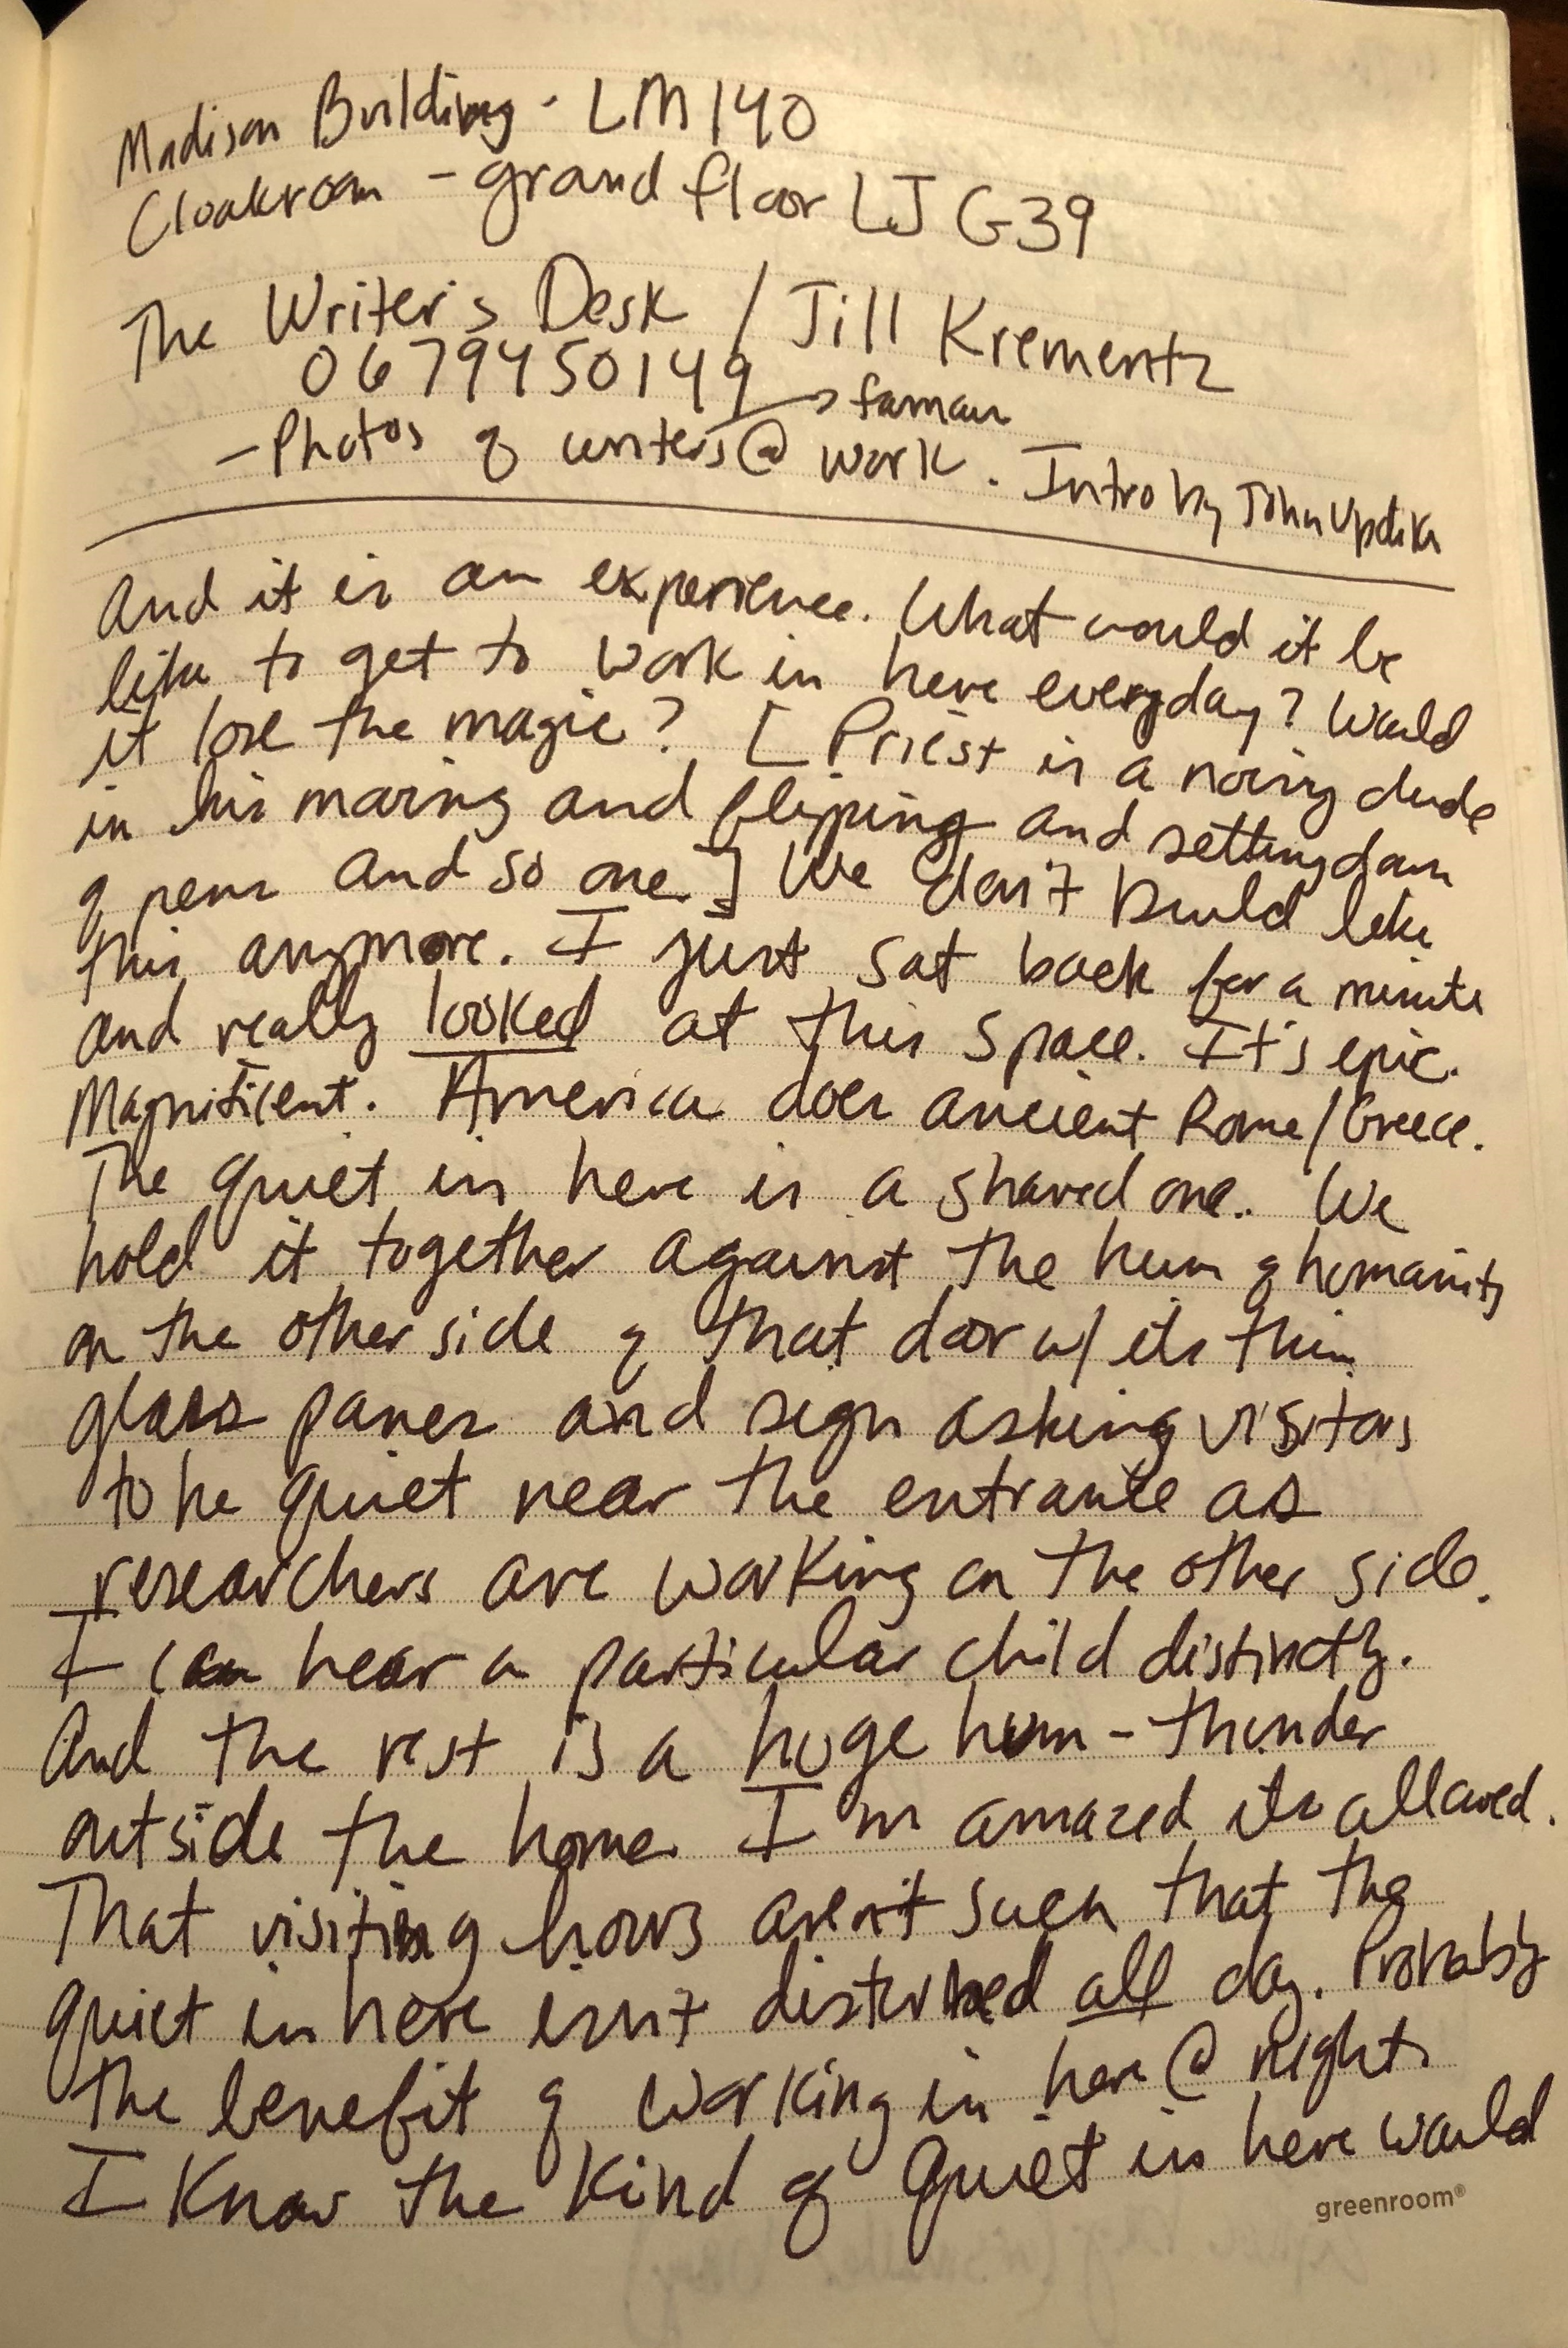 Madison Building - LM 140
Cloakroom - ground floor LJ G39
The Writer's Desk / Jill Krementz
0679450149 → famous
- Photos of writers @ work. Intro by John Updike
And it is an experience. What would it be
like to get to work in here everyday? Would
it lose the magic? [Priest is a noisy dude
in his moving and flipping and setting down
of pens and so one] We don't build like
this anymore. I just sat back for a minute
and really looked at this space. It's epic.
Magnificent. America does ancient Rome/Greece.
The quiet in here is a shared one. We
hold it together against the hum of humanity
on the other side of that door w/ its thin
glass panes and sign asking visitors
to be quiet near the entrance as
researchers are working on the other side.
I can hear a particular child distinctly.
And the rest is a huge hum - thunder
outside the home. I'm amazed its allowed.
That visiting hours aren't such that the
quiet in here isn't disturbed all day. Probably
the benefit of working in here @ night.
I know the kind of quiet in here would
greenroom®